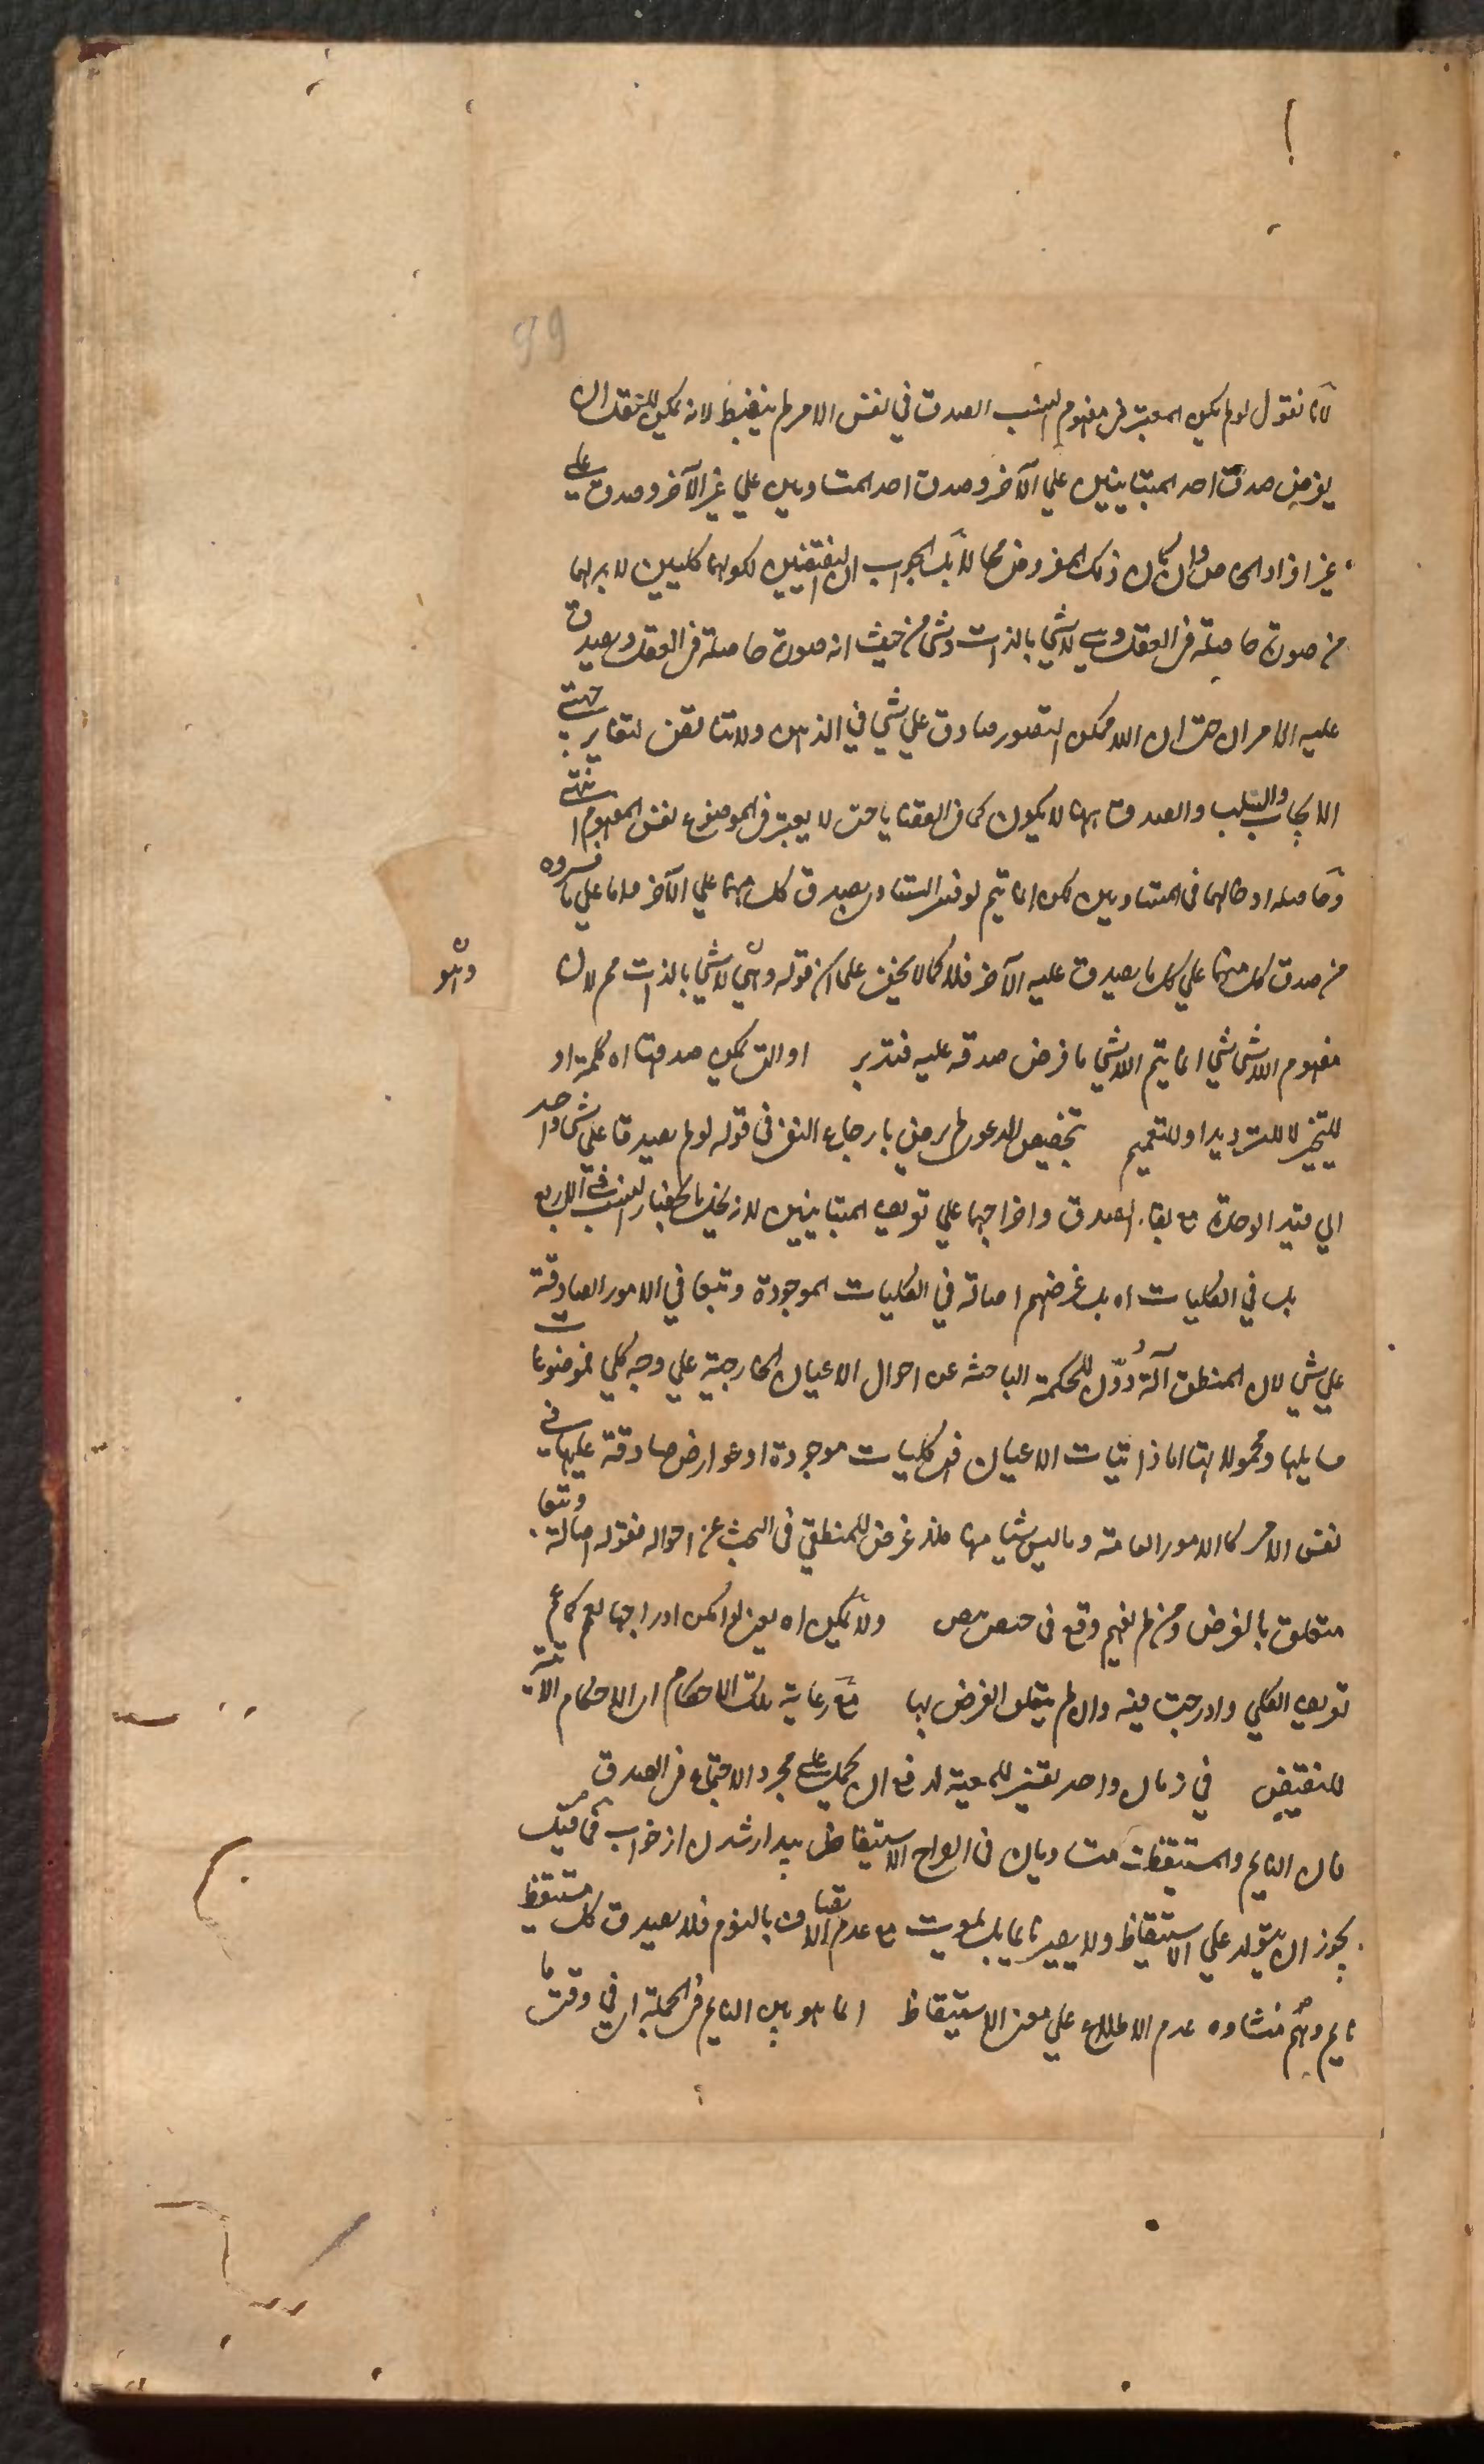 99
لانا نقول لو لم يكن المعتبر في مفهوم النسب الصدق في نفس الامر لم ينضبط لانه يمكن للعقل ان
يفرض صدق احد المتباينين علي الآخر وصدق احد المتساويين علي غير الآخر وصدق علي
غير افراد الخاص وان كان ذلك المفروض محالا بل الجواب ان النقيضين لكونهما كليين لا بد لهما
من صورة حاصلة في العقل وهي لا شي بالذات وشي من حيث انه صورة حاصلة في العقل ويصدق
عليه الامران حتي ان اللاممكن التصور صادق علي شي في الذهن ولا تناقض لتغاير جهتي
الايجاب والسلب والصدق ههنا لا يكون كما في القضايا حتي لا يعتبر في الموضوع نفس المفهوم انتهي
وحاصله ادخالهما في المتساويين لكن انما يتم لو فسر التساوي بصدق كل منهما علي الآخر واما علي ما فسروه
من صدق كل منهما علي كل ما يصدق عليه الآخر فلا كما لا يخفي علي ان قوله وهي لا شي بالذات مم لان
وهو
مفهوم اللاشي شي انما يتم اللاشي ما فرض صدقه عليه فتدبر او التي يمكن صدقها اه كلمة او
للتخيير لا للترديد او للتعميم تخصيص الدعوي لم يرض بارجاع النفي في قوله لو لم يصدقا علي شي واحد
الي قيد الوحدة مع بقاء الصدق واخراجهما علي تعريف المتباينين لانه يخل بانحصار النسب في الاربع
بل في الكليات اه بل غرضهم اصالة في الكليات الموجودة وتبعا في الامور الصادقة
علي شي لان المنطق آلة دُوّن للحكمة الباحثة عن احوال الاعيان الخارجية علي وجه كلي فموضوعات
مسايلها ومحمولاتها اما ذاتيات الاعيان فهي كليات موجودة او عوارض صادقة عليها في
نفس الامر كالامور العامة وما ليس شيا منها فلا غرض للمنطقي في البحث عن احواله فقوله اصالة وتبعا
متعلق بالغرض ومن لم يفهم وقع في حيص بيص ولا يمكن اه يعني لو امكن ادراجها لعم كما عم
تعريف الكلي وادرجت فيه وان لم يتعلق الغرض بها مع رعاية تلك الاحكام اي الاحكام الآتية
للنقيضين في زمان واحد تفسير للمعية لدفع ان يحمل علي مجرد الاجتماع في الصدق
فان النايم والمستيقظ متساويان في الواح الاستيقاظ بيدار شدن از خواب فما قيل
يجوز ان يتولد علي الاستيقاظ ولا يصير نايما بل يموت مع عدم الاتصاف بالنوم فلا يصدق كل مستيقظ
نايم وهم منشاوه عدم الاطلاع علي معني الاستيقاظ انما هو بين النايم في الجملة اي في وقت ما